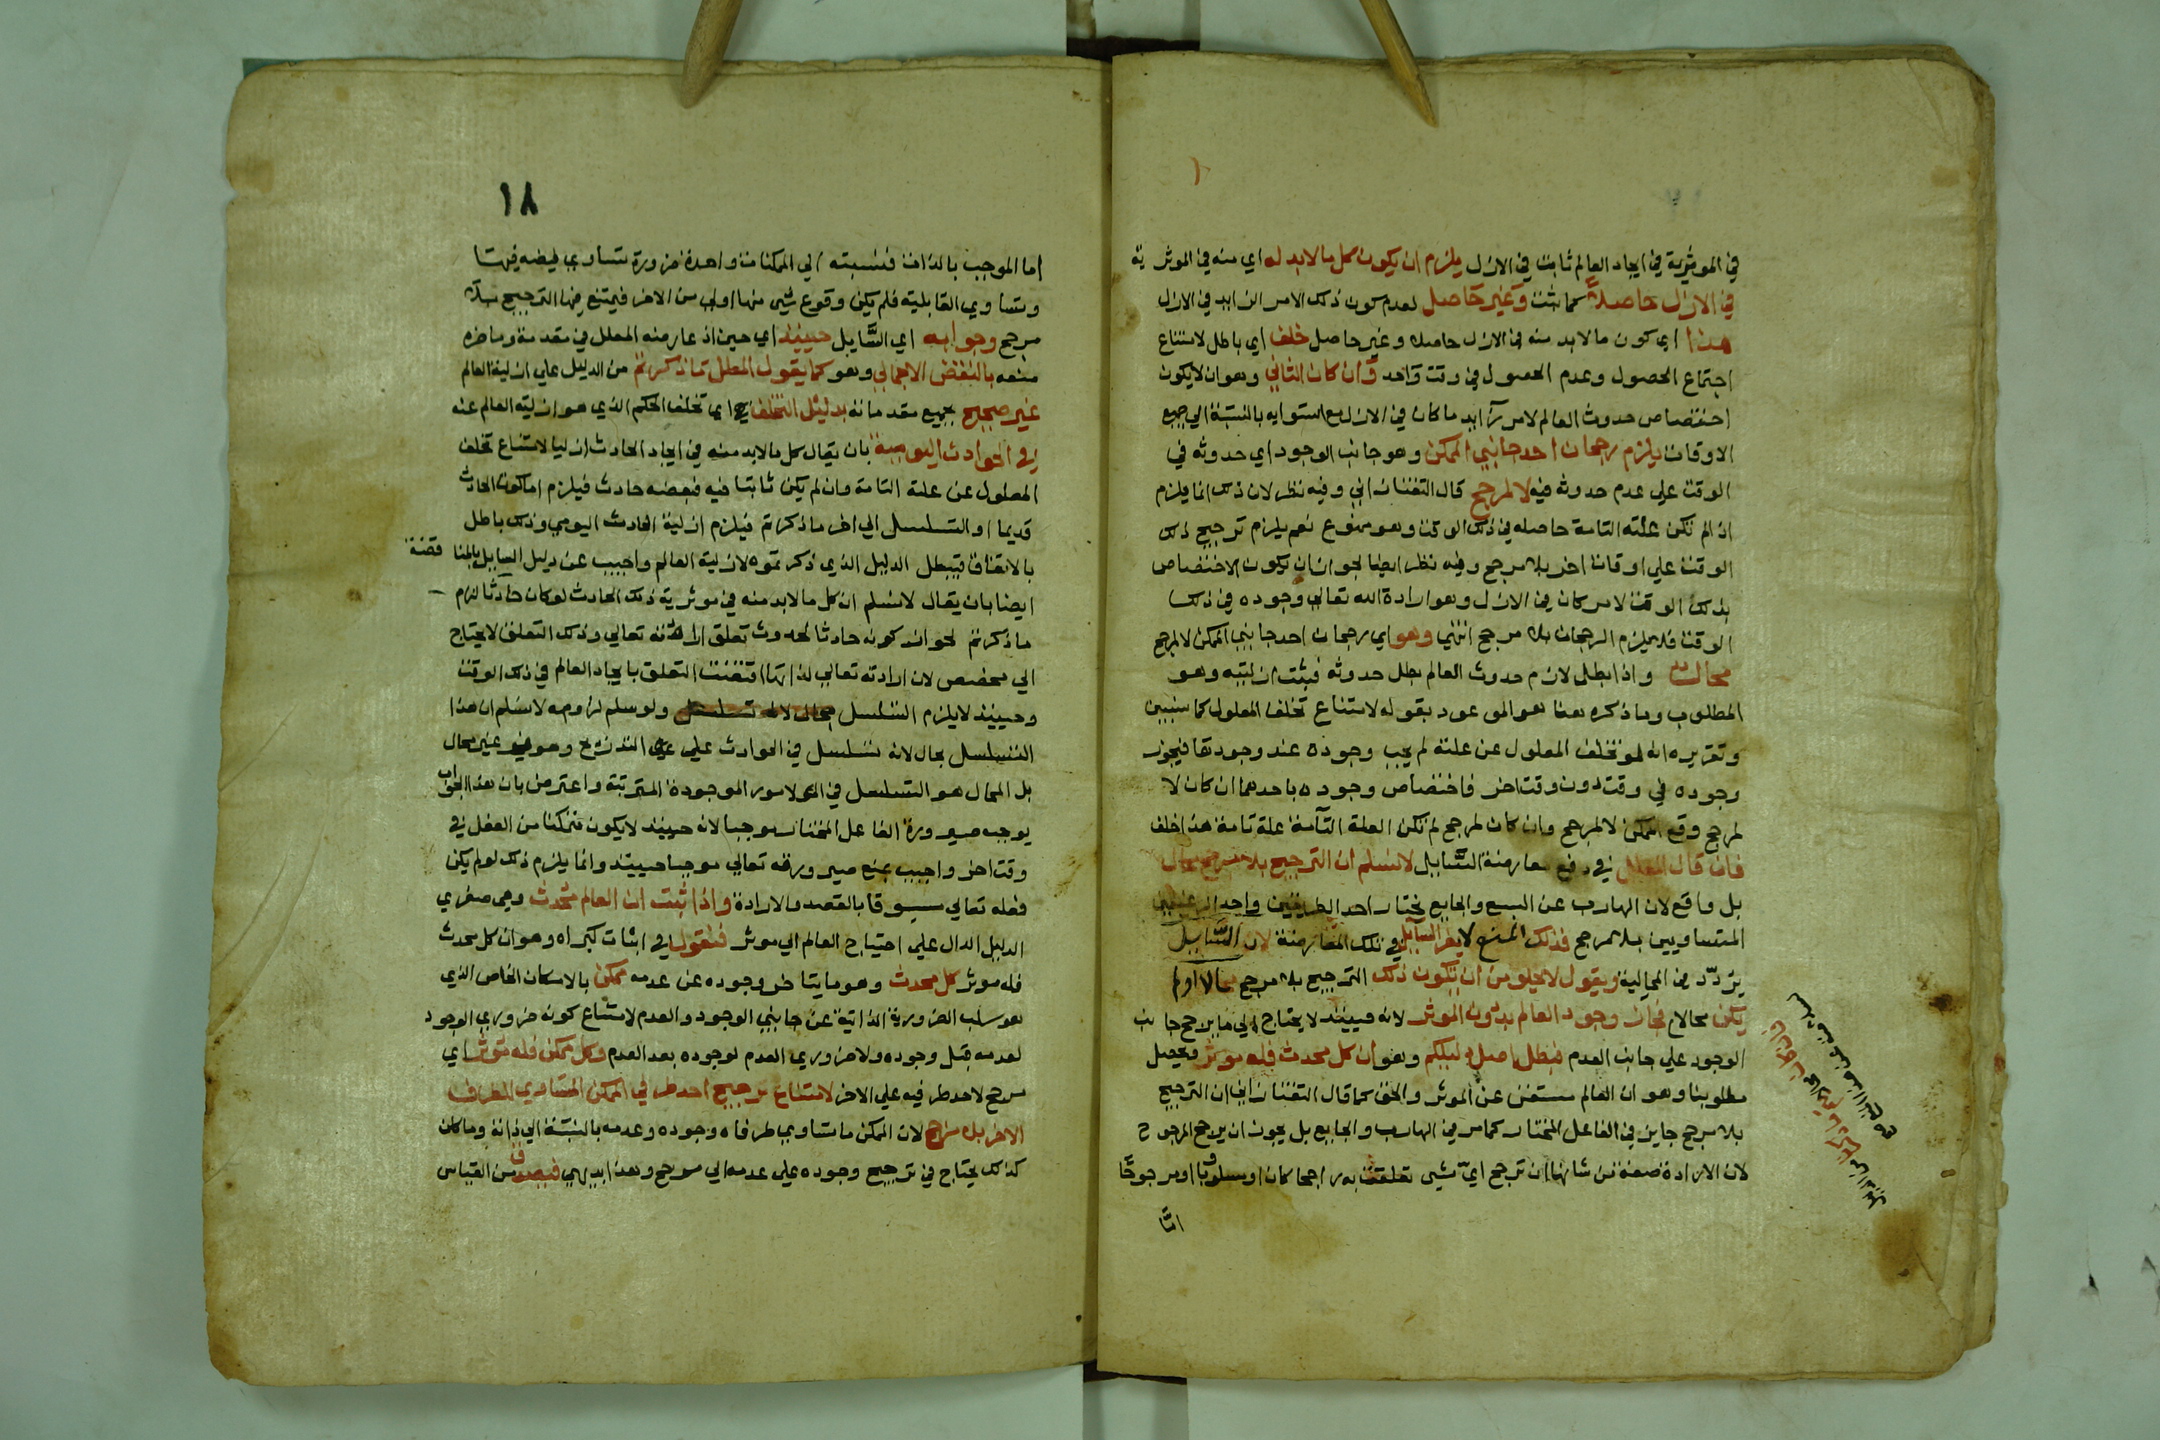 في الموثرية في ايجاد العالم ثابت في الازل يلزم ان يكون كل مالابد له اي منه في الموثر ية
في الازل حاصلا كما ثبت وغير حاصل لعدم كون ذلك الامر الزايد في الازل
هذا اي كون مالابد منه في الازل حاصلا وغير حاصل خلف اي باطل لامتناع
اجتماع الحصول وعدم الحصول في وقت واحد وان كان الثاني وهو ان لايكون
اختصاص حدوث العالم لامر زايد ما كان في الازل مع استوايه بالنسبة الي جميع
الاوقات يلزم رجحان احد جانبي الممكن وهو جانب الوجود اي حدوثه في
الوقت علي عدم حدوثه فيه لالمرجح قال التفتازاني وفيه نظر لان ذلك انما يلزم
اذ الم تكن علته التامة حاصله في ذلك الوقت وهو ممنوع نعم يلزم ترجيح ذلك
الوقت علي اوقات اخر بلا مرجح وفيه نظر ايضا لجواز ان يكون الاختصاص
بذلك الوقت لامر كان في الازل وهو ارادة الله تعالي وجوده في ذلك
الوقت فلا يلزم الرجحان بلا مرجح انتهي وهو اي رجحان احد جانبي الممكن لالمرجح
محال واذا بطل لازم حدوث العالم بطل حدوثه فثبت ازليته وهو
المطلوب وما ذكره هنا هو الموعود بقوله لامتناع تخلف المعلول كما سنبين
وتقريره انه لو تخلف المعلول عن علته لم يجب وجوده عند وجودها فيجوز
وجوده في وقت دون وقت اخر فاختصاص وجوده باحدهما ان كان لا
لمرجح وقع الممكن لالمرجح وان كان لمرجح لم تكن العلة التامة علة تامة هذا خلف
فان قال المعلل في دفع معارضة السايل لانسلم ان الترجيح بلا مرجح محال
بل واقع لان الهارب عن السبع والجايع يختار احد الطريقين واحد الرغيفين
المتساويين بلا مرجح فذلك المنع لايضر السايل في تلك المعارضة لان السايل
يردد في المحالية ويقول لايخلو من ان يكون ذلك الترجيح بلا مرجح محالا او لم
يكن محالا فجاز وجود العالم بدون الموثر لانه حينيذ لايحتاج الي ما يرجح جا نب
الوجود علي جانب العدم فبطل اصل دليلكم وهو ان كل محدث فله موثر ويحصل
مطلوبنا وهو ان العالم مستغني عن الموثر والحق كما قال التفتازاني ان الترجيح
بلا مرجح جايز في الفاعل المختار كما مر في الهارب والجايع بل يجوز ان يرجح المرجو ح
لان الارادة صفة من شانها ان ترجح اي شيي تعلقت به راجحا كان او مساويا او مرجوحا
اما
١٨
اما الموجب بالذات فنسبته الي الممكنات واحدة ضرورة تساوي فيضه فيها
وتساوي القابلية فلم يكن وقوع شيي منها اولي من الاخر فيمتنع فيها الترجيح بلا
مرجح وجوابه اي السايل حينيذ اي حين اذ عارضه المعلل في مقدمة وما ضره
منعه بالنقض الاجمالي وهو كما يقول المعلل ما ذكرتم من الدليل علي ازلية العالم
غير صحيح بجميع مقدماته بدليل التخلف اي تخلف الحكم الذي هو ازلية العالم عنه
في الحوادث اليومية بان يقال كل مالابد منه في ايجاد الحادث ازليا لامتناع تخلف
المعلول عن علته التامة وان لم يكن ثابتا فيه فبعضه حادث فيلزم اما كون الحادث
قديما او التسلسل الي اخر ما ذكرتم فيلزم ازلية الحادث اليومي وذلك باطل
بالاتفاق فيبطل الدليل الذي ذكرتموه لازلية العالم واجيب عن دليل السايل بالمنا قضة
ايضا بان يقال لانسلم ان كل مالابد منه في موثرية ذلك الحادث لو كان حادثا لزم
ما ذكرتم لجواز كونه حادثا لحدوث تعلق ارادته تعالي وذلك التعلق لايحتاج
الي مخصص لان ارادته تعالي لذاتها اقتضت التعلق بايجاد العالم في ذلك الوقت
وحينيذ لايلزم التسلسل ولو سلم لزومه لانسلم ان هذا
التسلسل محال لانه تسلسل في الحوادث علي التدريج وهو غير محال
بل المحال هو التسلسل في الامور الموجودة المترتبة واعترض بان هذا الجواب
يوجب صيرورة الفاعل المختار موجبا لانه حينيذ لايكون متمكنا من الفعل في
وقت اخر واجيب بمنع صيرورته تعالي موجبا حينيذ وانما يلزم ذلك لو لم يكن
فعله تعالي مسبوقا بالقصد والارادة واذا ثبت ان العالم محدث وهي صغري
الدليل الدال علي احتياج العالم الي موثر فنقول في اثبات كبراه وهو ان كل محدث
فله موثر كل محدث وهو ما يتاخر وجوده عن عدمه ممكن بالامكان الخاص الذي
هو سلب الضرورة الذاتية عن جانبي الوجود والعدم لامتناع كونه ضروري الوجود
لعدمه قبل وجوده ولا ضروري العدم لوجوده بعد العدم وكل ممكن فله موثر اي
مرجح لاحد طرفيه علي الاخر لامتناع ترجيح احد طرفي الممكن المتساوي للطرف
الاخر بلا مرجح لان الممكن ما تساوي طرفاه وجوده وعدمه بالنسبة الي ذاته وما كان
كذلك يحتاج في ترجيح وجوده علي عدمه الي مرجح وهذا بديهي فيصدق من القياس